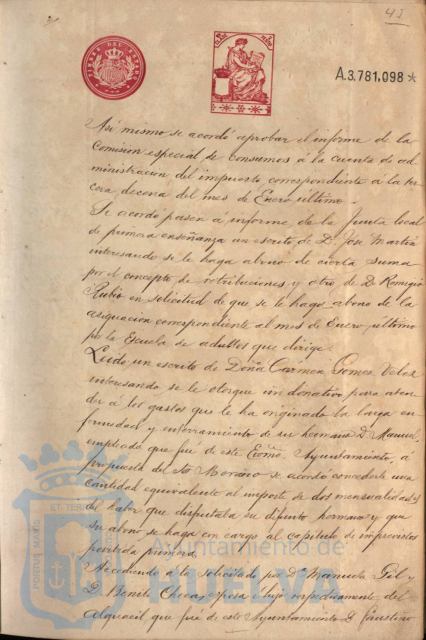 41
A.3.781,098 *
Asi mismo se acordó aprobar el informe de la
Comision especial de Consumos á la cuenta de ad
ministracion del impuesto correspondiente á la ter
cera decena del mes de Enero último.
Se acordó pasen á informe de la Junta local
de primera enseñanza un escrito de D. José Martin
interesando se le haga abono de cierta suma
por el concepto de retribuciones y otro de D. Remigio
Rubio en solicitud de que se le haga abono de la
asignacion correspondiente al mes de Enero último
por la Escuela de adultos que dirige.
Leido un escrito de Doña Cármen Gomez Velez
interesando se le otorgue un donativo para aten
der á los gastos que le ha originado la larga en
fermedad y enterramiento de su hermano D. Manuel,
empleado que fué de este Excmo. Ayuntamiento á
propuesta del Sr. Morano se acordó concederle una
cantidad equivalente al importe de dos mensualidades
del haber que disfrutaba su difunto hermano y que
su abono se haga con cargo al capítulo de imprevistos
partida primera.
Accediendo á lo solicitado por Dª Manuela Gil y
D. Benito Checa, esposa é hijo respectivamente del
Alguacil que fué de este Ayuntamiento D. Faustino
Ayuntamiento de
HUELVA